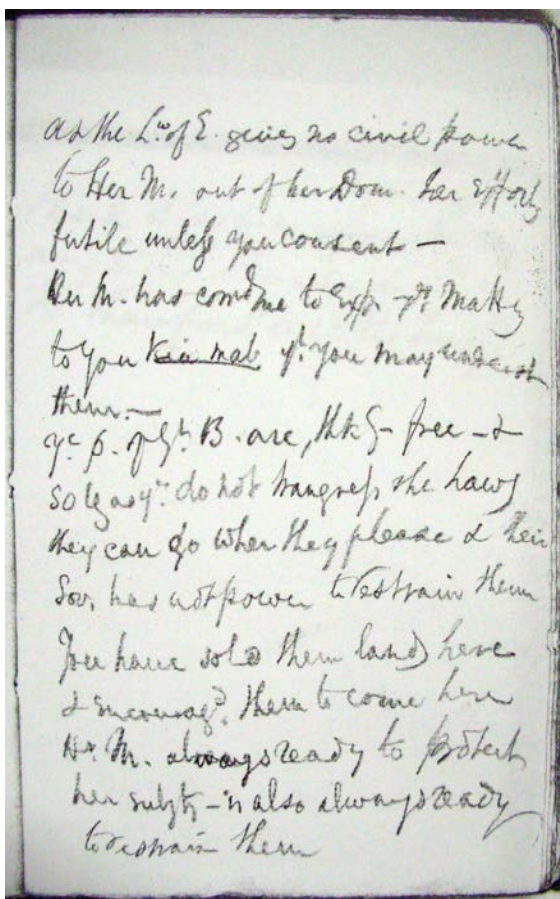 as the Lw of E. gives no civil power
to Her M. out of her Dom. her Efforts
futile unless you consent —
Her M. has comd me to Exp. ys Matts
to you yt you may underst
them. —
ye p. of Gt B. are, thk G- free - &
so lg as yy do not trangress the Laws
they can go wher they please & their
Sov. has not power to restrain them
You have sold them lands here
& encouragd. them to come here
Hr. M. always ready to protect
her subjts - is also always ready
to restrain them